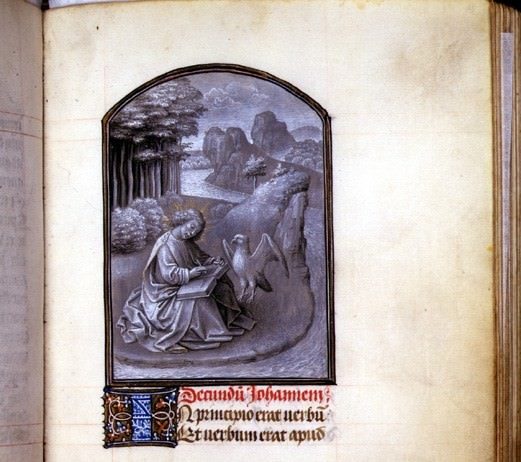 Secundū Johannem:
IN principio erat uerbū
Et uerbum erat apud